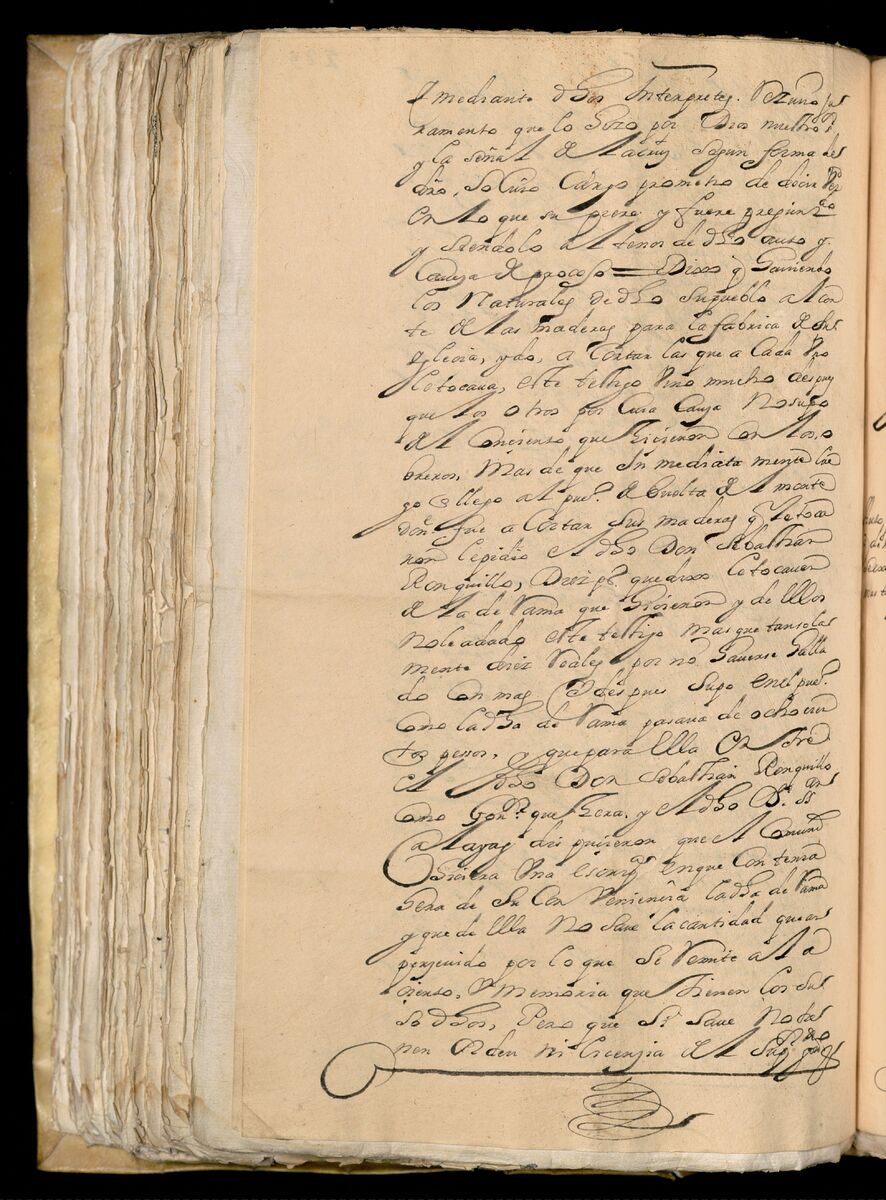 y mediante dhos Interpretes. Reziuio ju
ramento que lo hizo por Dios nuestro sor
y la señal de la cruz segun forma de
dro, so cuio cargo prometio de decir verd
en lo que supiere y fuere pregunto
y siendolo al tenor de dho auto y
caueza de proceso = Dixo q hauiendo
los Naturales de dho su pueblo al mon
te de las maderas para la fabrica de su
Iglecia, ydo, a cortar las que a cada vno
letocaua, este testigo vino mucho despues
que los otros por cuia cauza no supo
el conciento que hicieron con los, o
breros, mas de que inmediata mente lue
go q llego al pueo de buelta del monte
donde fue a cortar sus maderas q le toca
ron le pidio el dho Don Sebasthian
Ronquillo, Diez ps que dixo le tocauan
de la de rrama que hicieron y de ellos
no le a dado este testigo mas que tan sola
mente diez Reales por no hauerse halla
do con mas y despues supo en el pueo
como la dha de rrama pasaua de ocho cien
tos pesos, y que para ella
el dho Don Sebasthian Ronquillo
como Gor que hera, y el dho
que el comun
hiciera vna escripra en que contenia
hera de su con veniencia la dha de rrama
y que de ella no saue la cantidad que an
perseuido por lo que se remite al a
ciento, y memoria que tienen los su
so dhos, Pero que si saue no tie
nen orden ni licenzia del Supor gouno